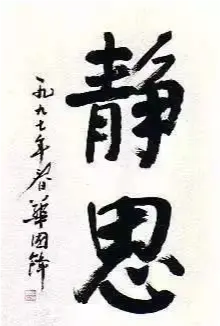 静思
一九九七年春
華國鋒